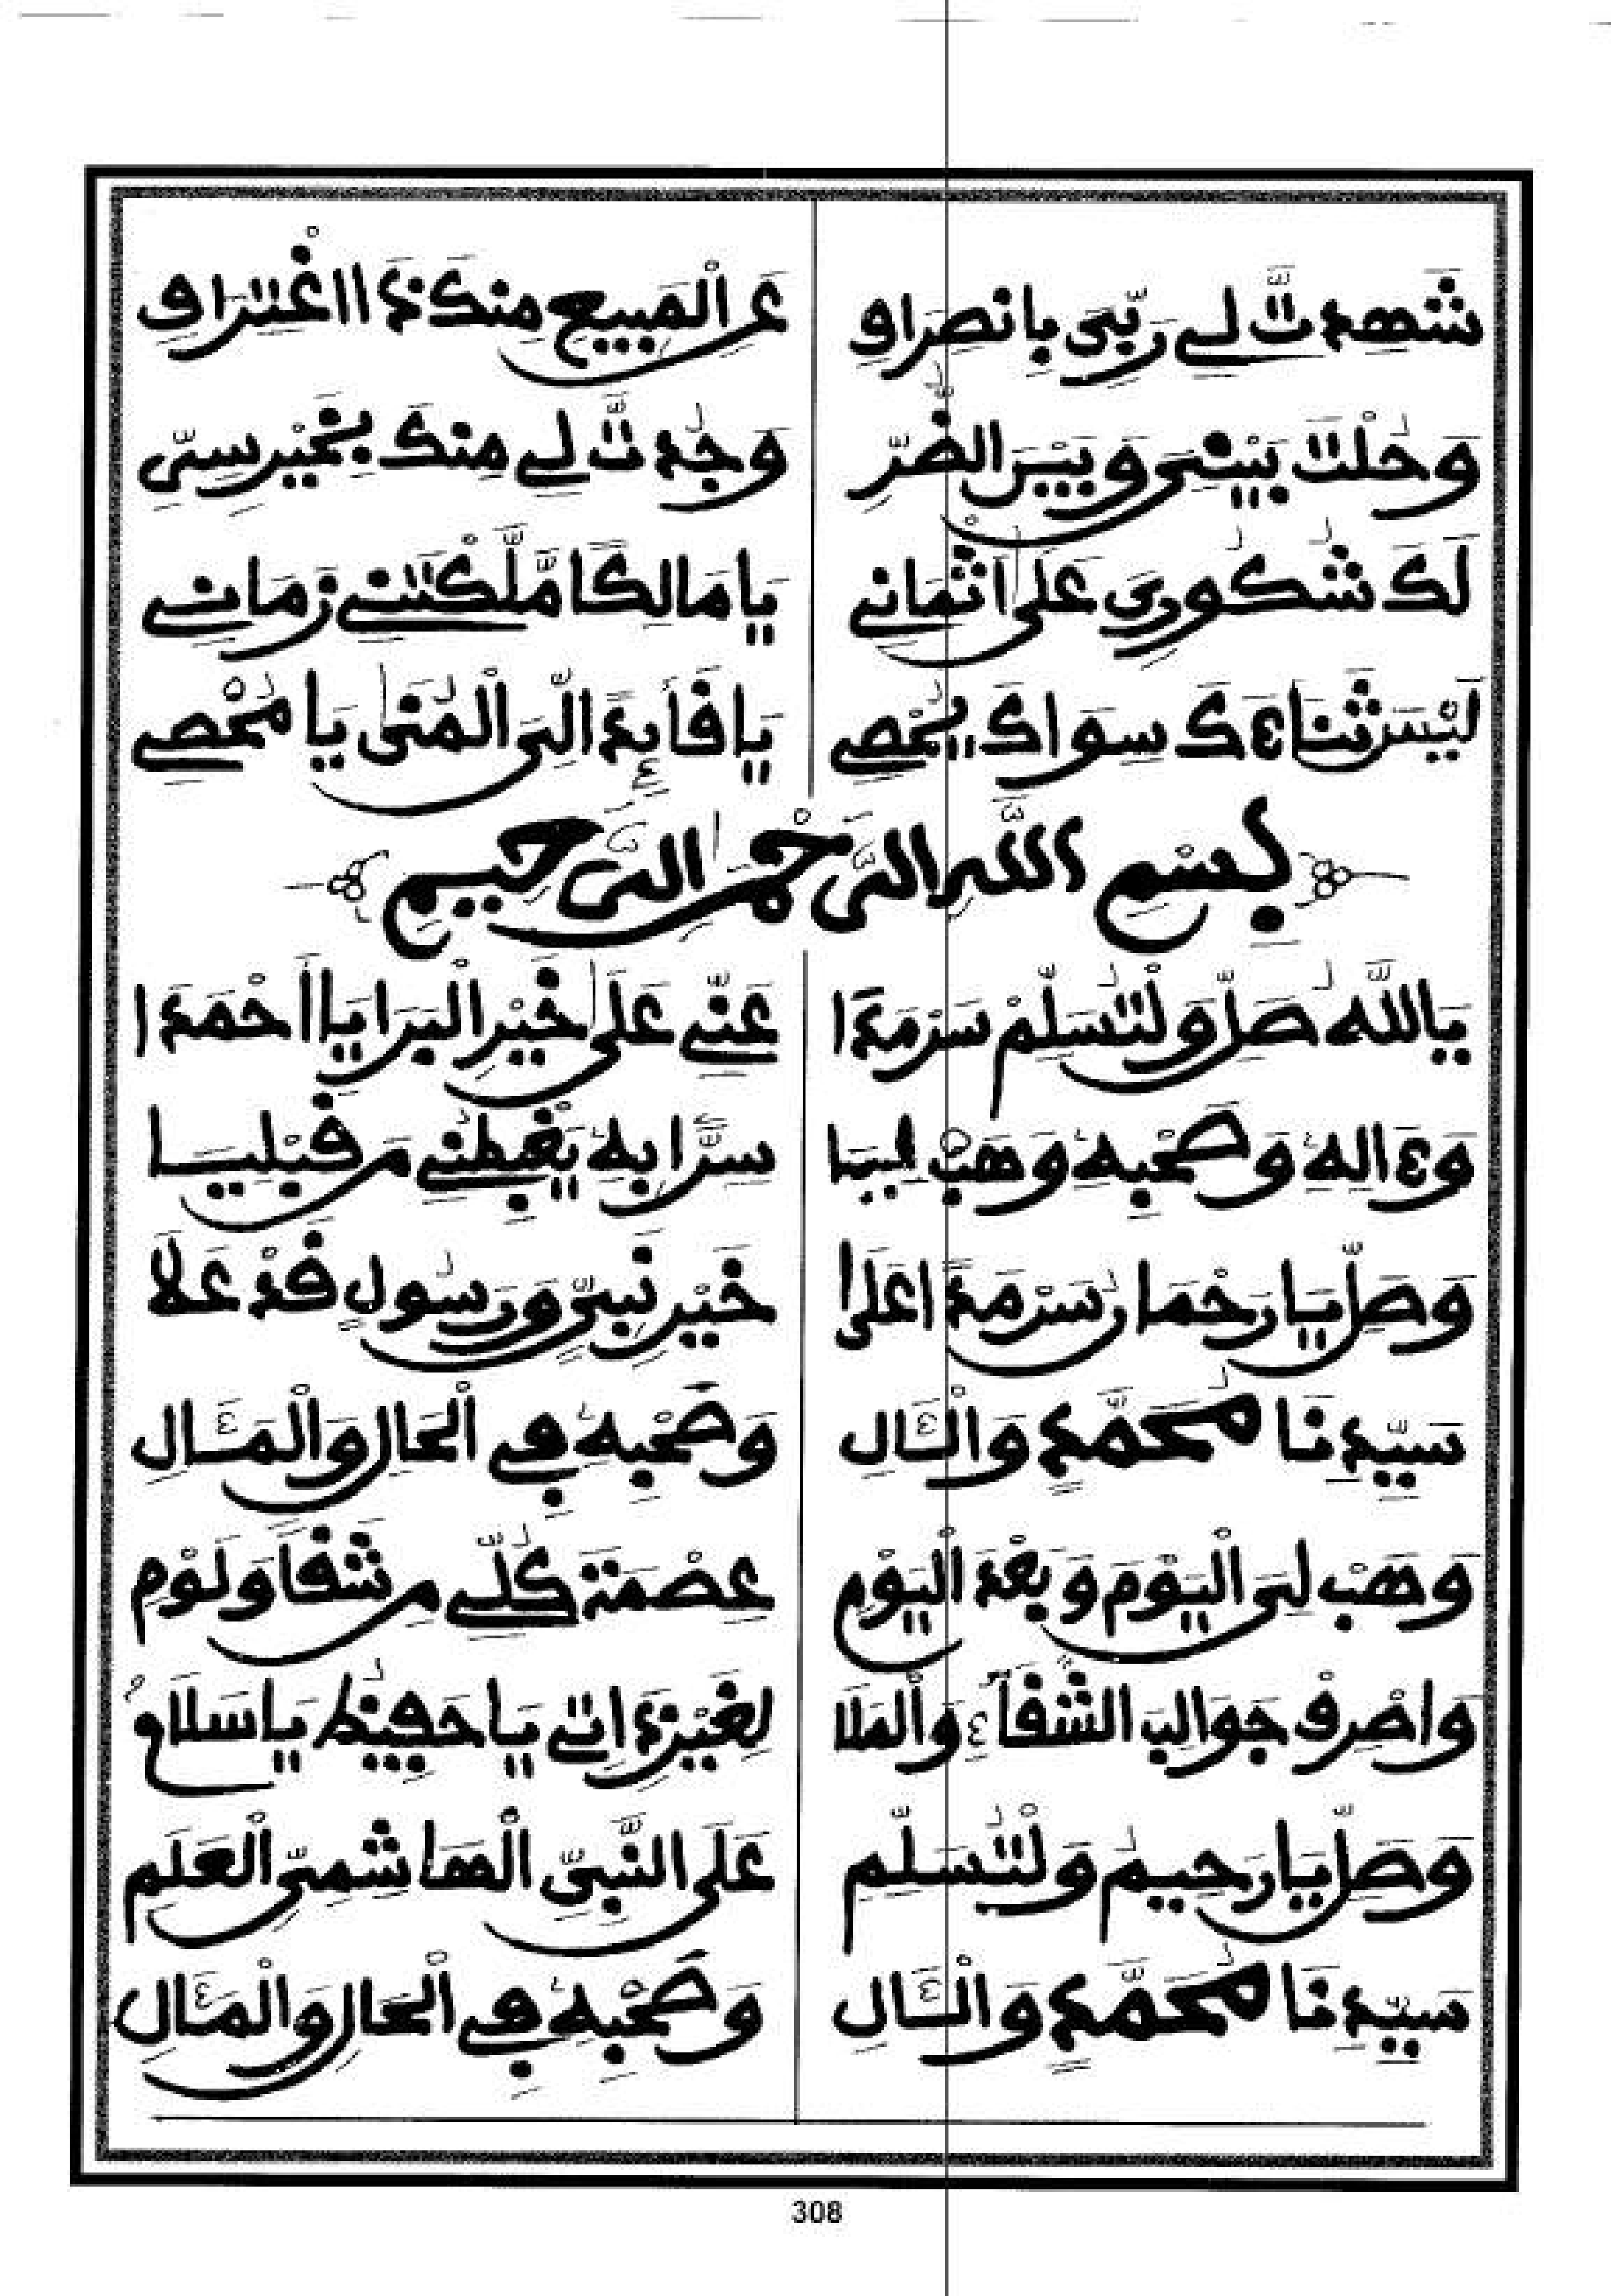 شَهِدتَّ لِے رَبِّي بِانصِرَافِ عَنِ الْقَبِيحِ مِنكَ ذَا اغْتِرَافِ
وَحُلْتَ بَيْنِي وَبَيْنَ الضُّرِّ وَجُدتَّ لِے مِنكَ بِخَيْرِ سِرِّ
لَكَ شُكُورِيَ عَلَى اثْمَانِے يَا مَالِكًا مَلَّكْتَنِے زَمَانِے
لَيْسَ ثَنَاءَكَ سِوَاكَ يُحْصِے يَا قَائِدًا إِلَى الْمُنَى يَا مُحْصِے
بِسْمِ اللَّهِ الرَّحْمَنِ الرَّحِيمِ
يَا اللَّهُ صَلِّ وَلْتُسَلِّمْ سَرْمَدَا عَنِّے عَلَى خَيْرِ الْبَرَايَا أَحْمَدَا
وَءَالِهِ وَصَحْبِهِ وَهَبْ لِيَا سِرًّا بِهِ يَغْبِطُنِے مَن قَبْلِيَا
وَصَلِّ يَا رَحْمَانُ سَرْمَدًا عَلَى خَيْرِ نَبِيٍّ وَرَسُولٍ قَدْ عَلَا
سَيِّدِنَا مُحَمَّدٍ وَالْئَالِ وَصَحْبِهِ فِے الْحَالِ وَالْمَئَالِ
وَهَبْ لِيَ الْيَوْمَ وَبَعْدَ الْيَوْمِ عِصْمَةَ كُلِّے مِن شَقًا وَلَوْمِ
وَاصْرِفْ جَوَالِبَ الشَّقَاءِ وَالْمَلَا لِغَيْرِ ذَاتِے يَا حَفِيظُ يَا سَلَامُ
وَصَلِّ يَا رَحِيمُ وَلْتُسَلِّمِ عَلَى النَّبِيِّ الْهَاشِمِيِّ الْعَلَمِ
سَيِّدِنَا مُحَمَّدٍ وَالْئَالِ وَصَحْبِهِ فِے الْحَالِ وَالْمَئَالِ
308